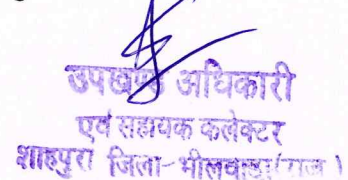 उपखण्ड अधिकारी
एवं सहायक कलेक्टर
शाहपुरा जिला-भीलवाड़ा (राज.)